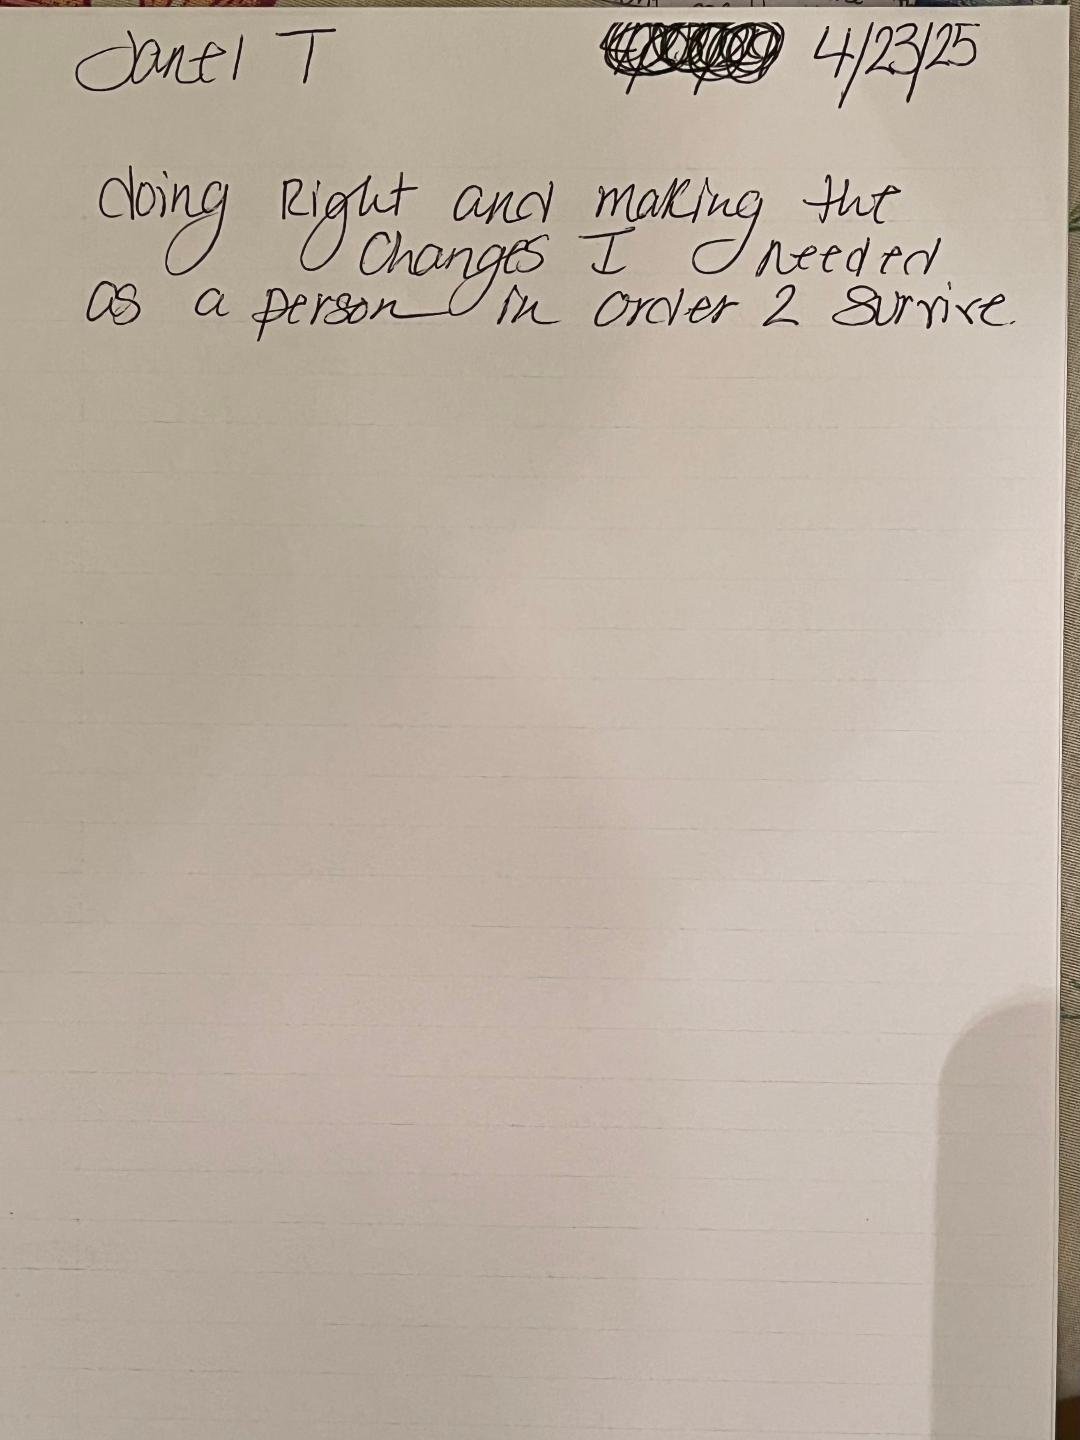 Janel T 4/23/25
doing Right and making the
Changes I needed
as a person in order 2 survive.